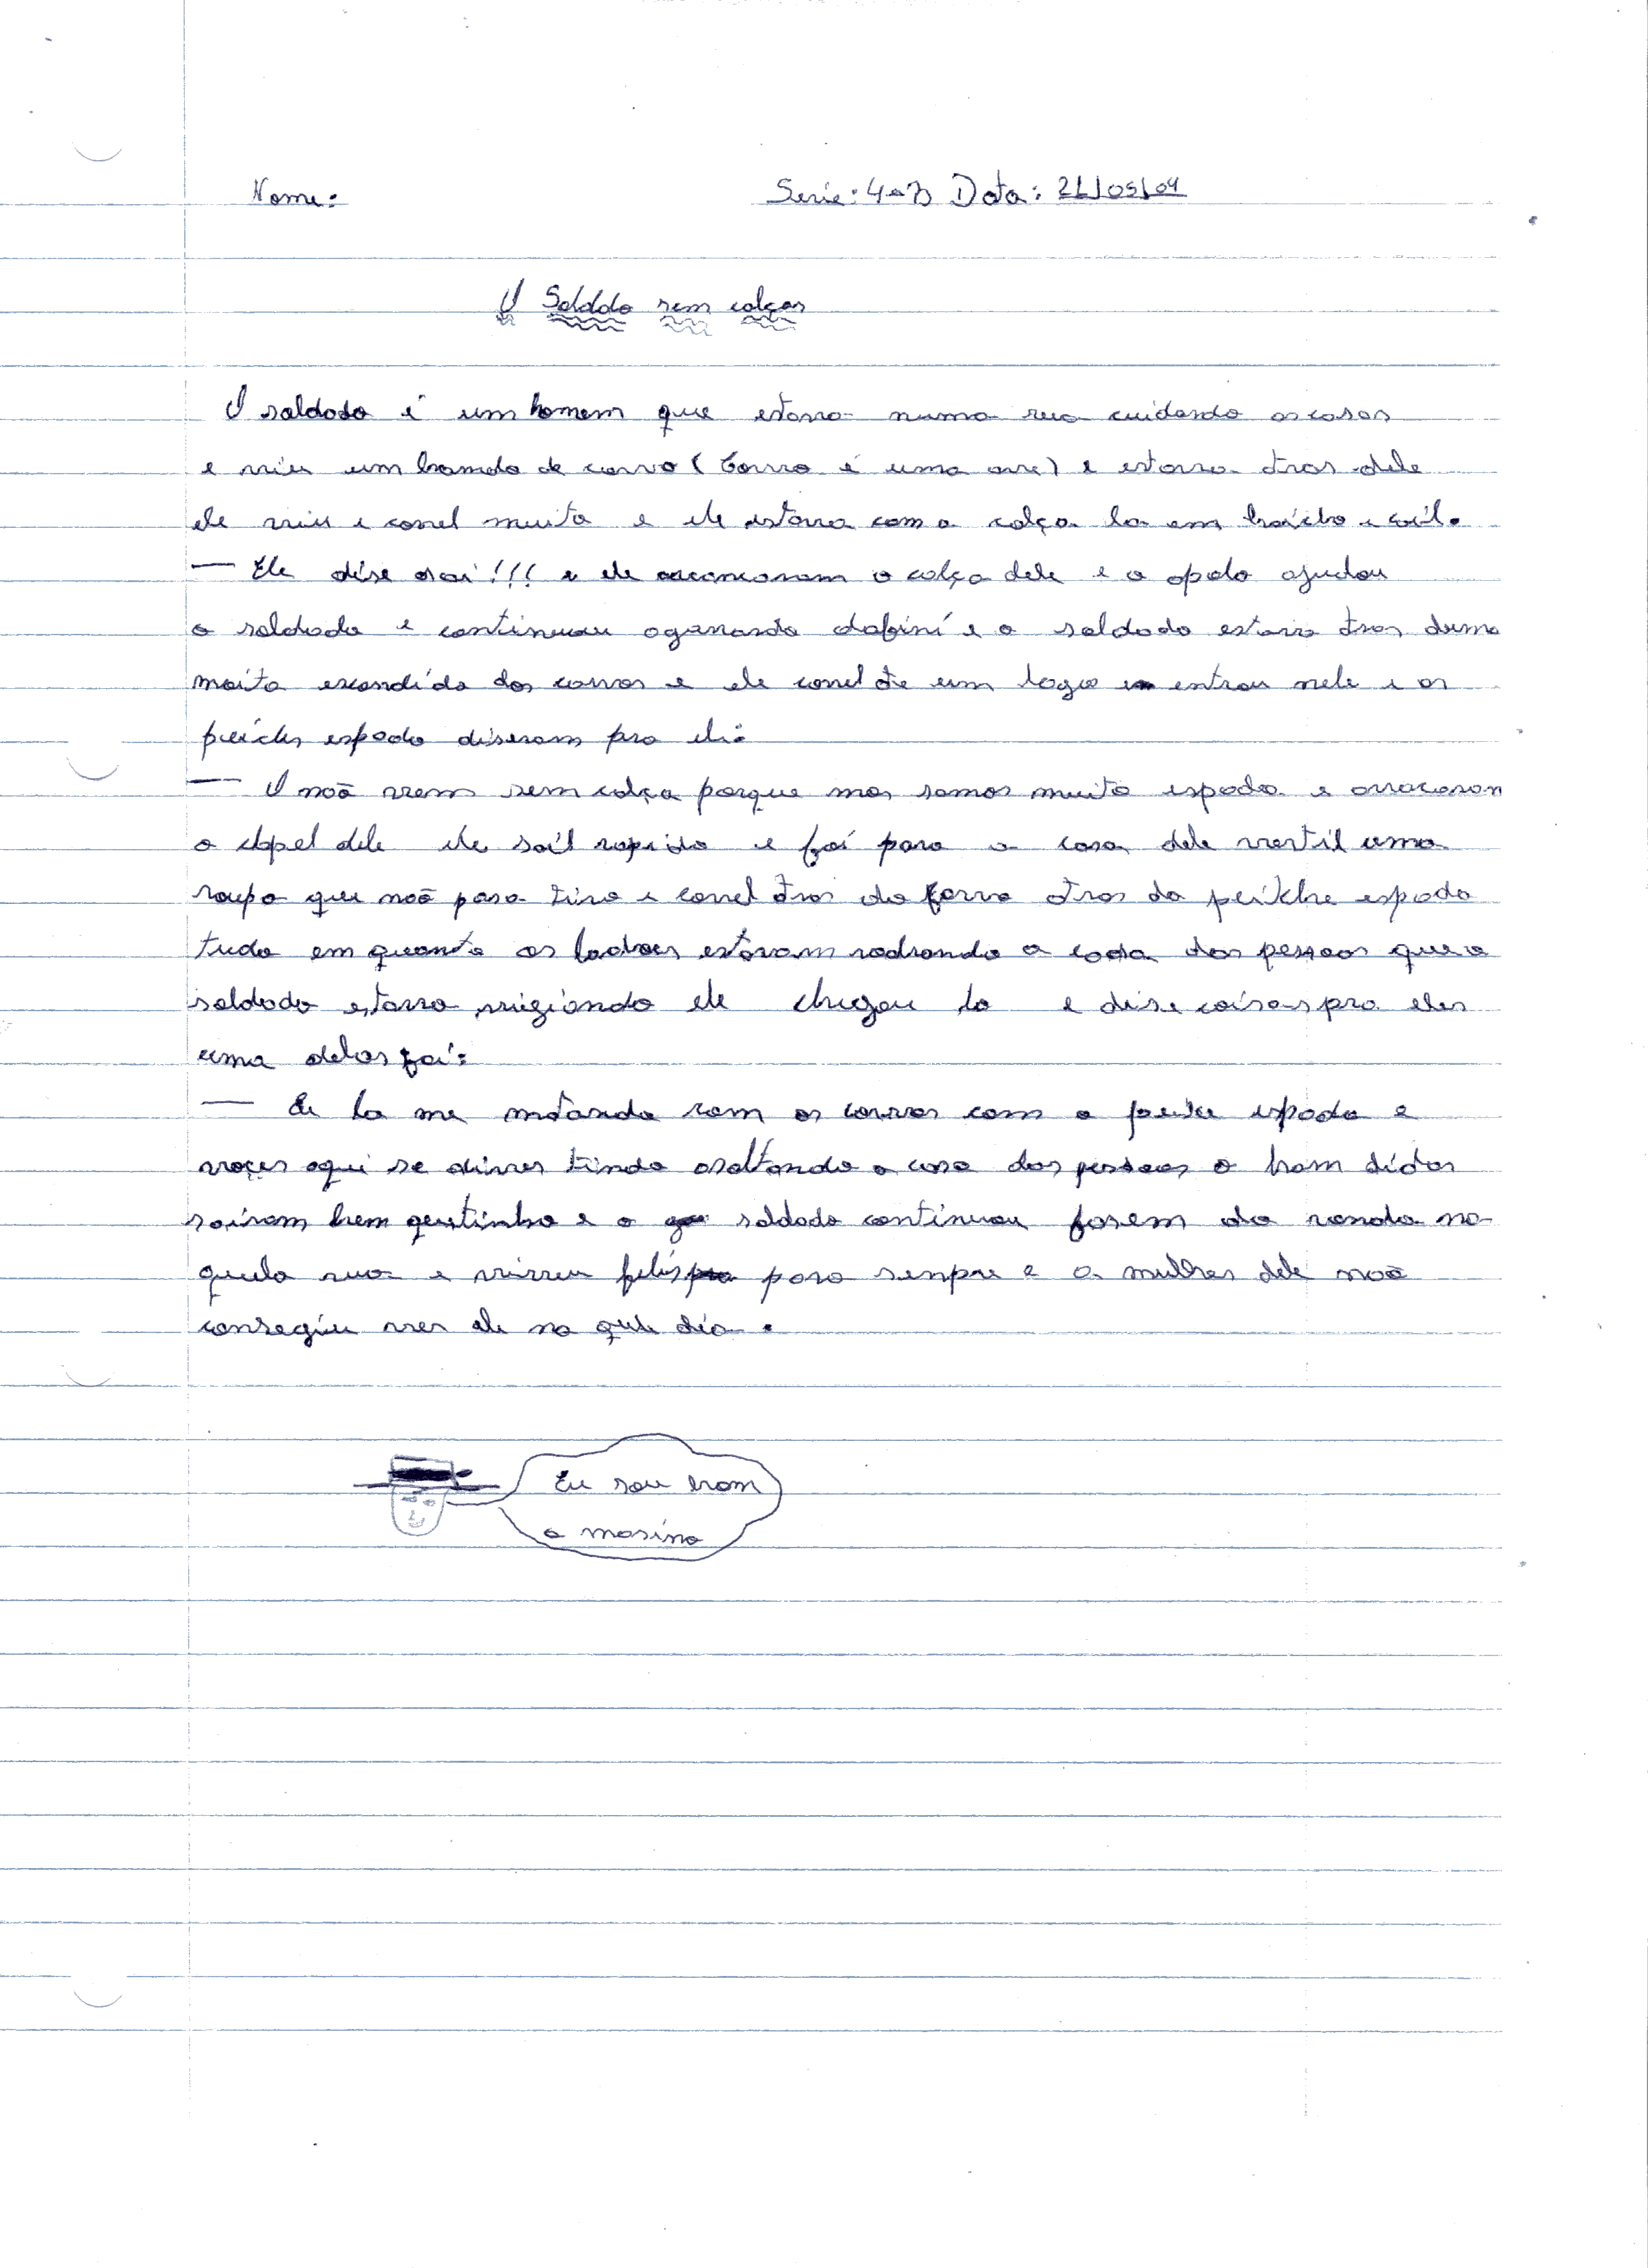 Nome:
Serie: 4ªB Data: 21/05/04
O Soldado sem calças
O soldado é um homem que estava numa rua cuidando as casas
e viu um bamdo de corvo (Corvo é uma ave) e estava atras dele
ele viu e correl muito e ele estava com a calça la em baicho e cail.
— Ele dise aai!!! e ele arrancaram a calça dele e o apelo ajudou
o soldado e continuou agarrando e o soldado estava tras duma
moita escondido dos corvos e ele correl ate um lago entrou nele e os
peichs espada diseram pra ele:
— A naõ vem sem calça porque nos somos muito espada e arracaram
o chapel dele ele sail rapido e foi para a casa dele vestil uma
roupa que naõ pasa tiro e correl atras do corvo atras do peichhe espada
tudo em quanto os ladroes estavam robando a casa das pessoas que o
soldado estava vigiando ele chegou la e dise coisas pra eles
uma delas foi:
— Eu la me matando com os corvos com o peixe espada e
voçes aqui se diver tindo asaltando a casa das pessoas o bam didos
sairam bem quetinho e o soldado continuou fasem do ronda na
quela rua e viveu felis para senpre e a mulher dele naõ
consegiu ver ele na quele dia.
Eu sou bom
a masina